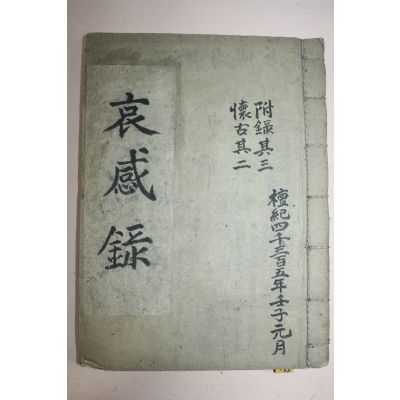 檀紀四千三百五年壬子元月
附錄其三
懷古其二
哀感錄